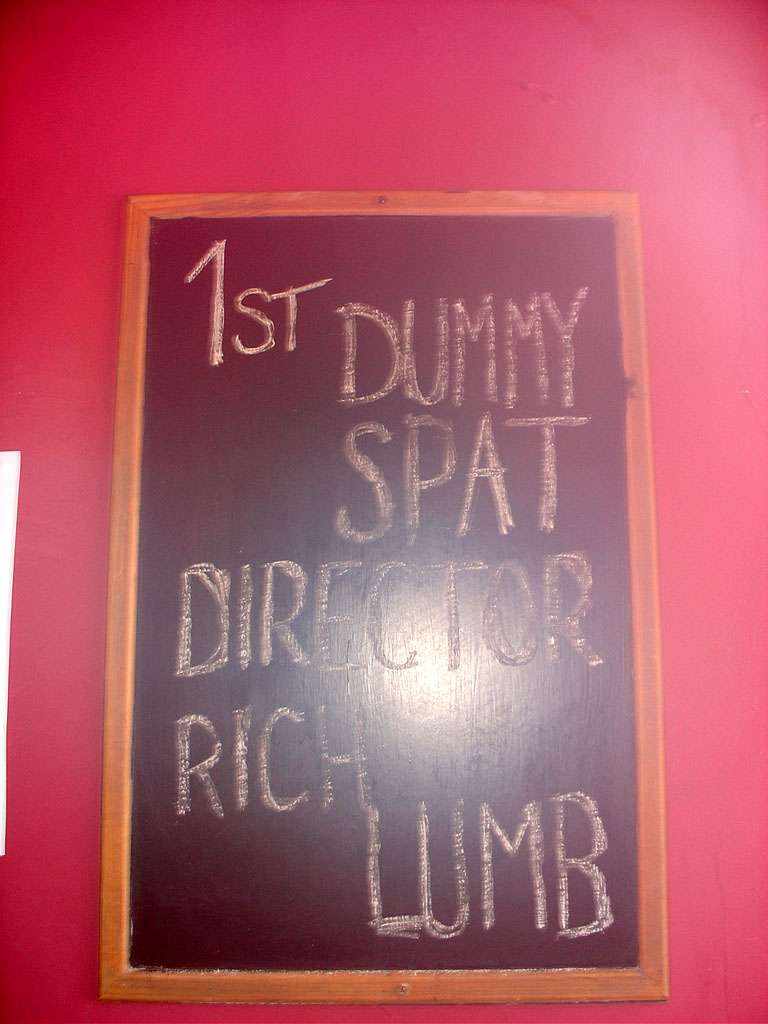 1ST DUMMY
SPAT
DIRECTOR
RICH
LUMB